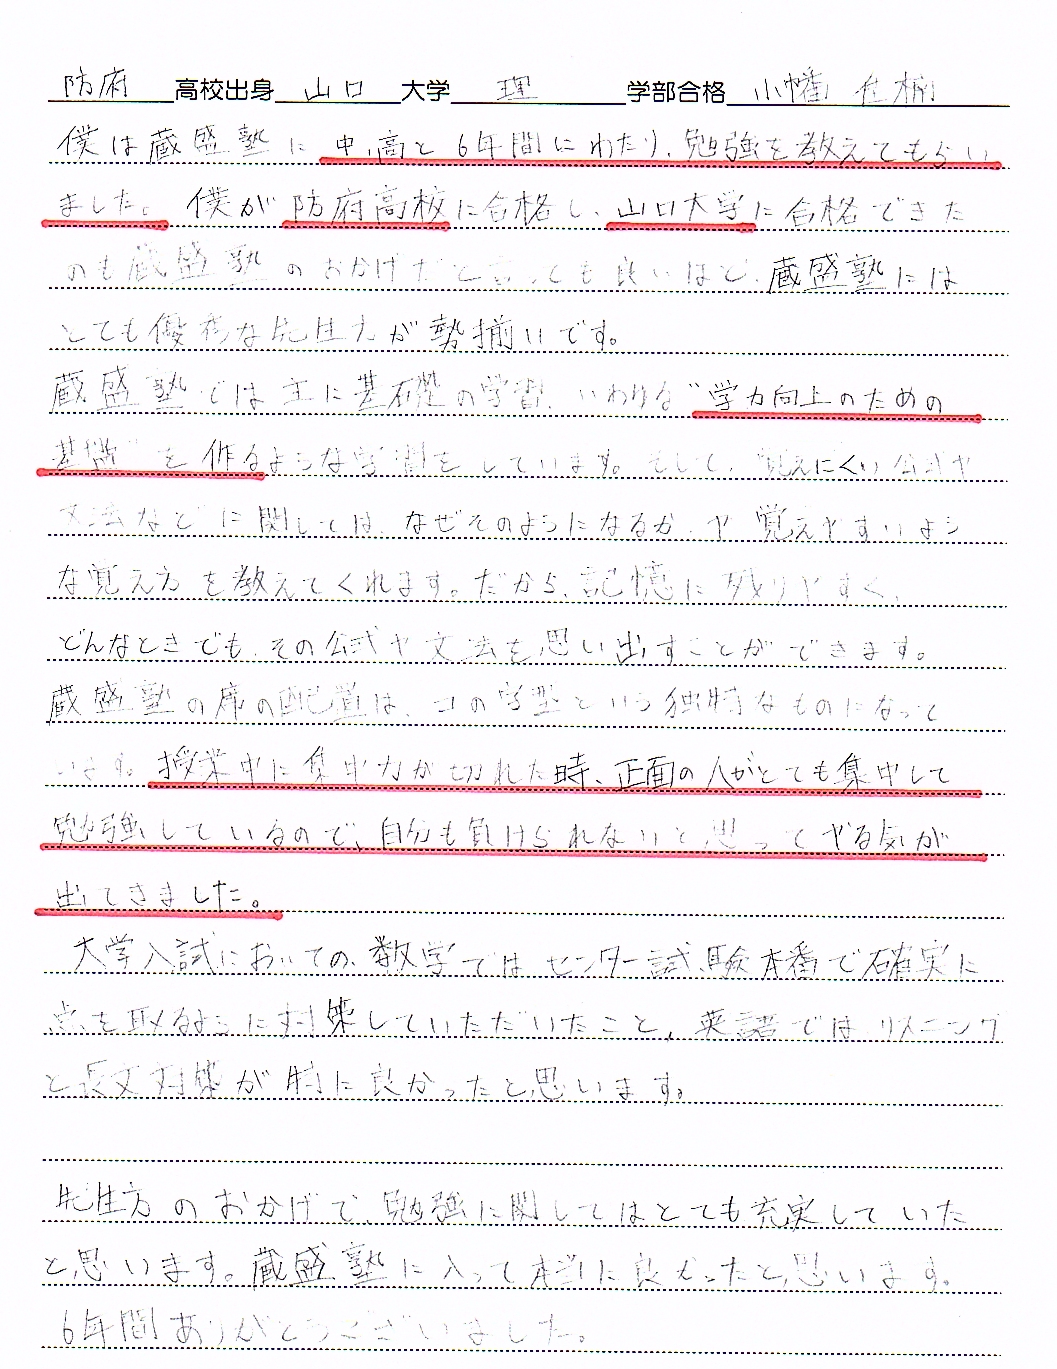 防府 高校出身 山口 大学 理 学部合格 小幡
僕は蔵盛塾に中、高と6年間にわたり、勉強を教えてもらい
ました。僕が防府高校に合格し、山口大学に合格できた
のも蔵盛塾のおかげだと言っても良いほど、蔵盛塾には
とても優秀な先生方が勢揃いです。
蔵盛塾では主に基礎の学習、いわゆる"学力向上のための
基盤"を作るような学習をしています。そして、覚えにくい公式や
文法などに関しては、なぜそのようになるか、や覚えやすいよう
な覚え方を教えてくれます。だから、記憶に残りやすく、
どんなときでも、その公式や文法を思い出すことができます。
蔵盛塾の席の配置は、コの字型という独特なものになって
います。授業中に集中力が切れた時、正面の人がとても集中して
勉強しているので、自分も負けられないと思ってやる気が
出てきました。
大学入試においての、数学ではセンター試験本番で確実に
点を取るように対策していただいたこと、英語ではリスニング
と長文対策が特に良かったと思います。
先生方のおかげで、勉強に関してはとても充実していた
と思います。蔵盛塾に入って本当に良かったと思います。
6年間ありがとうございました。